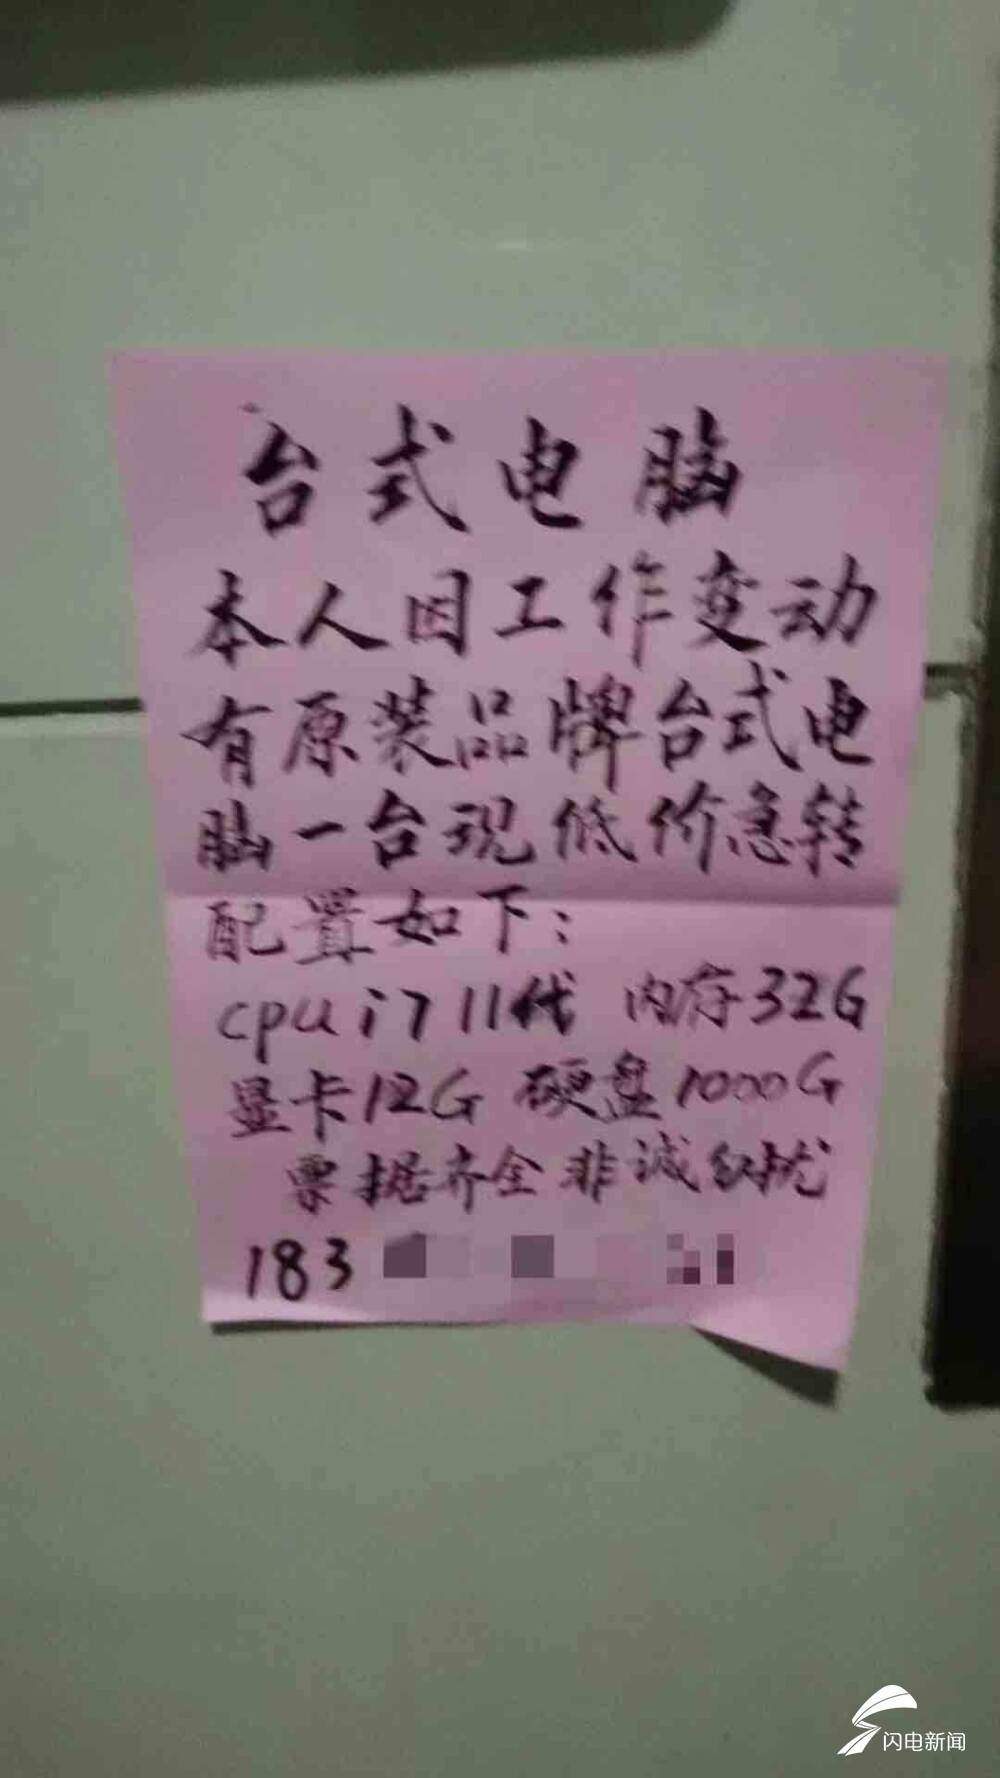 台式电脑
本人因工作变动
有原装品牌台式电
脑一台现低价急转
配置如下：
cpu i7 11代 内存32G
显卡12G 硬盘1000G
票据齐全 非诚勿扰
183
闪电新闻